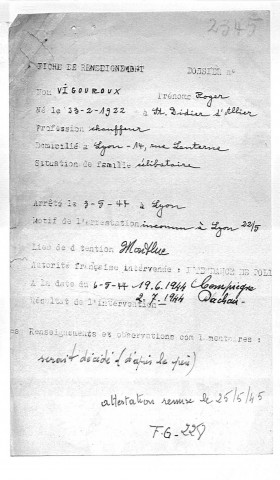 2345
FICHE DE RENSEIGNEMENT DOSSIER n°
Nom VIGOUROUX Prénoms Roger
Né le 23-2-1922 à St. Didier s/Allier
Profession chauffeur
Domicilié à Lyon - 14, rue Lanterne
Situation de famille célibataire
Arrêté le 3-5-44 à Lyon
Motif de l'arrestation inconnu à Lyon 22/5
Lieu de détention Montluc
Autorité française intervenue : L'INTENDANCE DE POLI
A la date du 6-5-44 19.6.1944 Compiègne
Résultat de l'intervention 2.7.1944 Dachau
Renseignements et observations complémentaires :
serait décédé (d'après la
attestation remise le 25/5/45
F.G-229